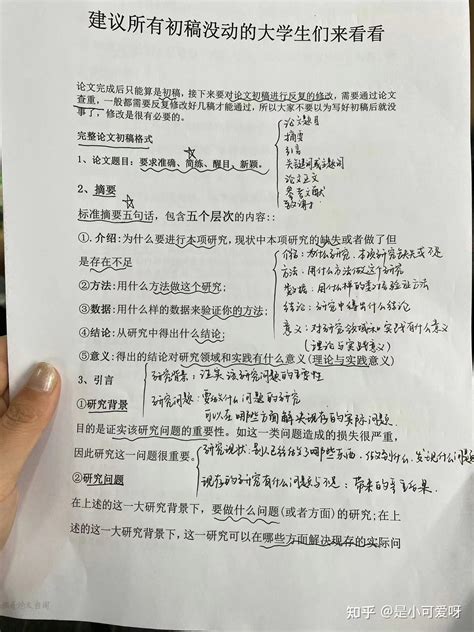 建议所有初稿没动的大学生们来看看
论文完成后只能算是初稿，接下来要对论文初稿进行反复的修改，需要通过论文
查重，一般都需要反复修改好几稿才能通过，所以大家不要以为写好初稿后就没
事了，修改是很有必要的。
完整论文初稿格式
论文题目
摘要
引言
关键词或主题词
论文正文
参考文献
致谢
1、论文题目：要求准确、简练、醒目、新颖。
2、摘要
标准摘要五句话，包含五个层次的内容：:
①.介绍:为什么要进行本项研究,现状中本项研究的缺失或者做了但
是存在不足
②方法:用什么方法做这个研究;
③数据:用什么样的数据来验证你的方法;
④结论:从研究中得出什么结论;
⑤意义:得出的结论对研究领域和实践有什么意义(理论与实践意义)
介绍：为什么研究，本项研究缺失或是
方法：用什么方法做这个研究
数据：用什么样的数据验证方法
结论：研究中得出什么结论
意义：对研究领域和实践有什么意义
（理论与实践意义）
3、引言
研究背景：证实该研究问题的重要性
①研究背景
研究问题：要做什么问题的研究
可以在哪些方面解决现存的实际问题
目的是证实该研究问题的重要性。如这一类问题造成的损失很严重，
因此研究这一问题很重要。
研究现状：别人已经做了哪些东西
②研究问题
现存的研究有什么问题
带来的
结果
在上述的这一大研究背景下，要做什么问题(或者方面)的研究;在上
述的这一大研究背景下，这一研究可以在哪些方面解决现存的实际问
知乎 @是小可爱呀